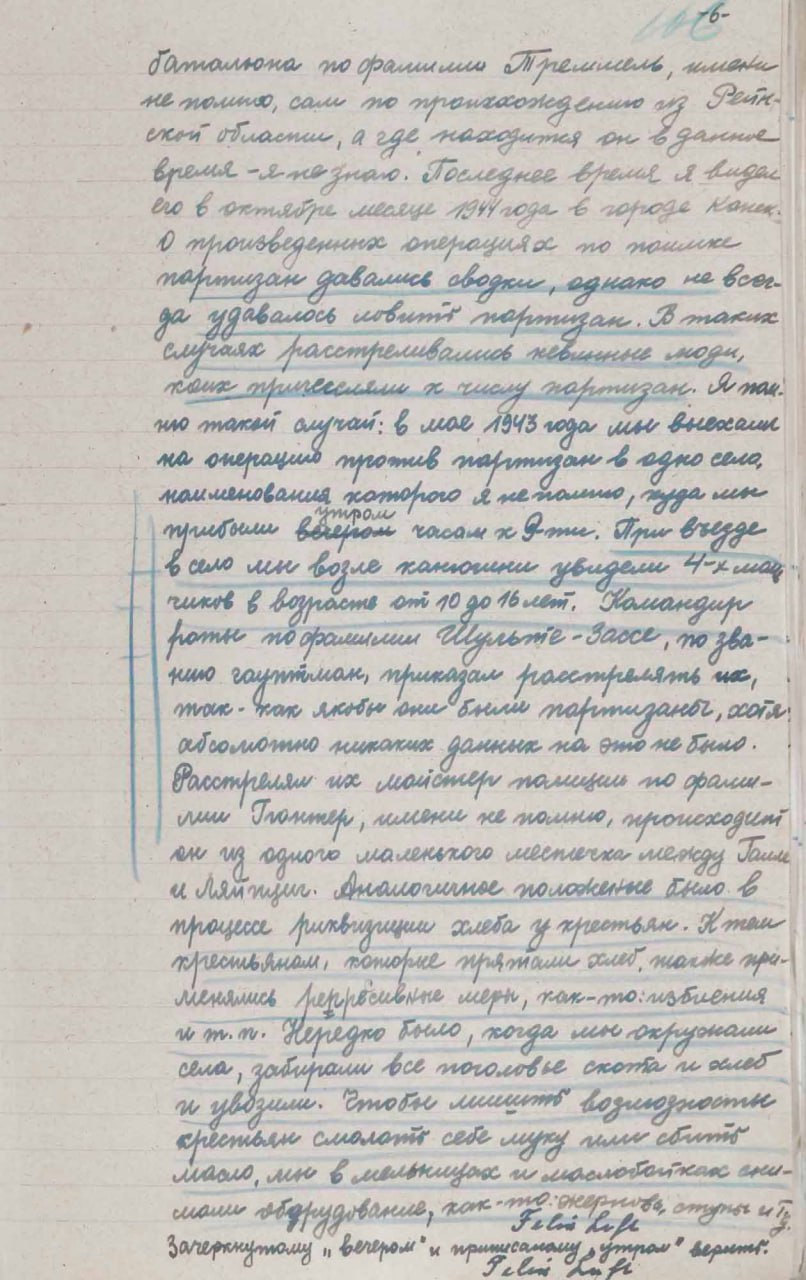 -6-
баталиона по фамилии Треммель, имени
не помню, сам по происхождению из Рейн-
ской области, а где находится он в данное
время - я не знаю. Последнее время я видел
его в октябре месяце 1944 года в городе
О произведенных операциях по поимке
партизан давались сводки, однако не всег-
да удавалось ловить партизан. В таких
случаях расстреливались невинные люди,
коих причесляли к числу партизан. Я пом-
ню такой случай: в мае 1943 года мы выехали
на операцию против партизан в одно село,
наименования которого я не помню, куда мы
утром
прибыли вечером часам к 9-ти. При въезде
в село мы возле конюшни увидели 4-х маль
чиков в возрасте от 10 до 16 лет. Командир
роты по фамилии Шульте-Зассе, по зва-
нию гауптман, приказал расстрелять их,
так-как якобы они были партизаны, хотя
абсолютно никаких данных на это не было.
Расстрелял их майстер полиции по фами-
лии Гюнтер, имени не помню, происходит
он из одного маленького местечка между Галле
и Ляйпциг. Аналогичное положение было в
процессе риквизиции хлеба у крестьян. К тем
крестьянам, которые прятали хлеб, также при-
менялись репресивные меры, как-то: избиения
и т.п. Нередко было, когда мы окружали
села, забирали все поголовье скота и хлеб
и увозили. Чтобы лишить возможности
крестьян смолоть себе муку или сбить
масло, мы в мельницах и маслобойках сни-
мали оборудование, как-то: жернова, ступы и т.д.
Felix
Зачеркнутому „вечером" и приписаному „утром" верить.
Felix